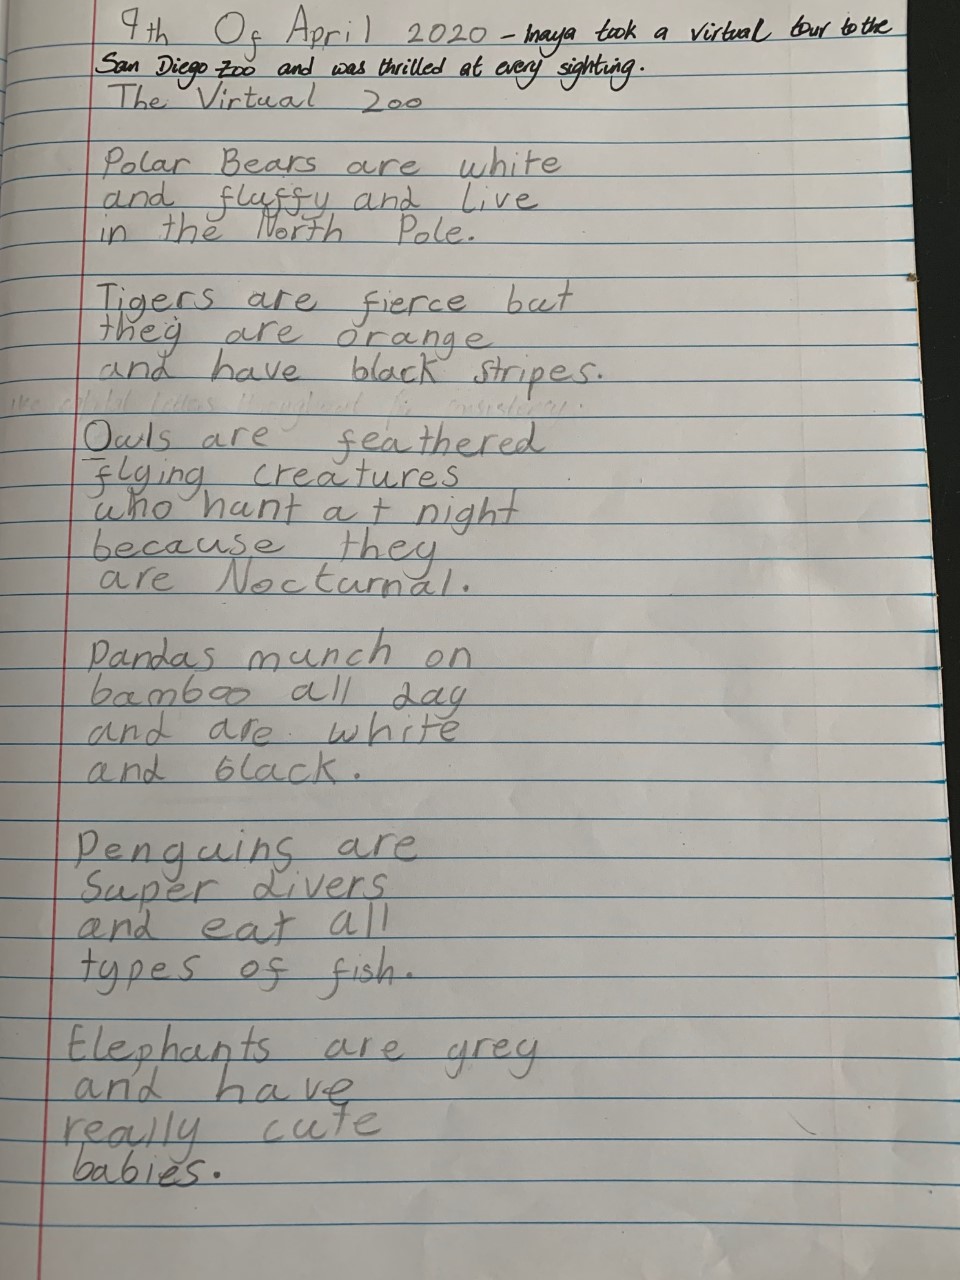 9th Of April 2020 - Inaya took a virtual tour to the
San Diego Zoo and was thrilled at every sighting.
The Virtual Zoo
Polar Bears are white
and fluffy and live
in the North Pole.
Tigers are fierce but
they are orange
and have black stripes.
capital letters throughout for consistency.
Owls are feathered
flying creatures
who hunt at night
because they
are Nocturnal.
Pandas munch on
bamboo all day
and are white
and black.
Penguins are
Super divers
and eat all
types of fish.
Elephants are grey
and have
really cute
babies.